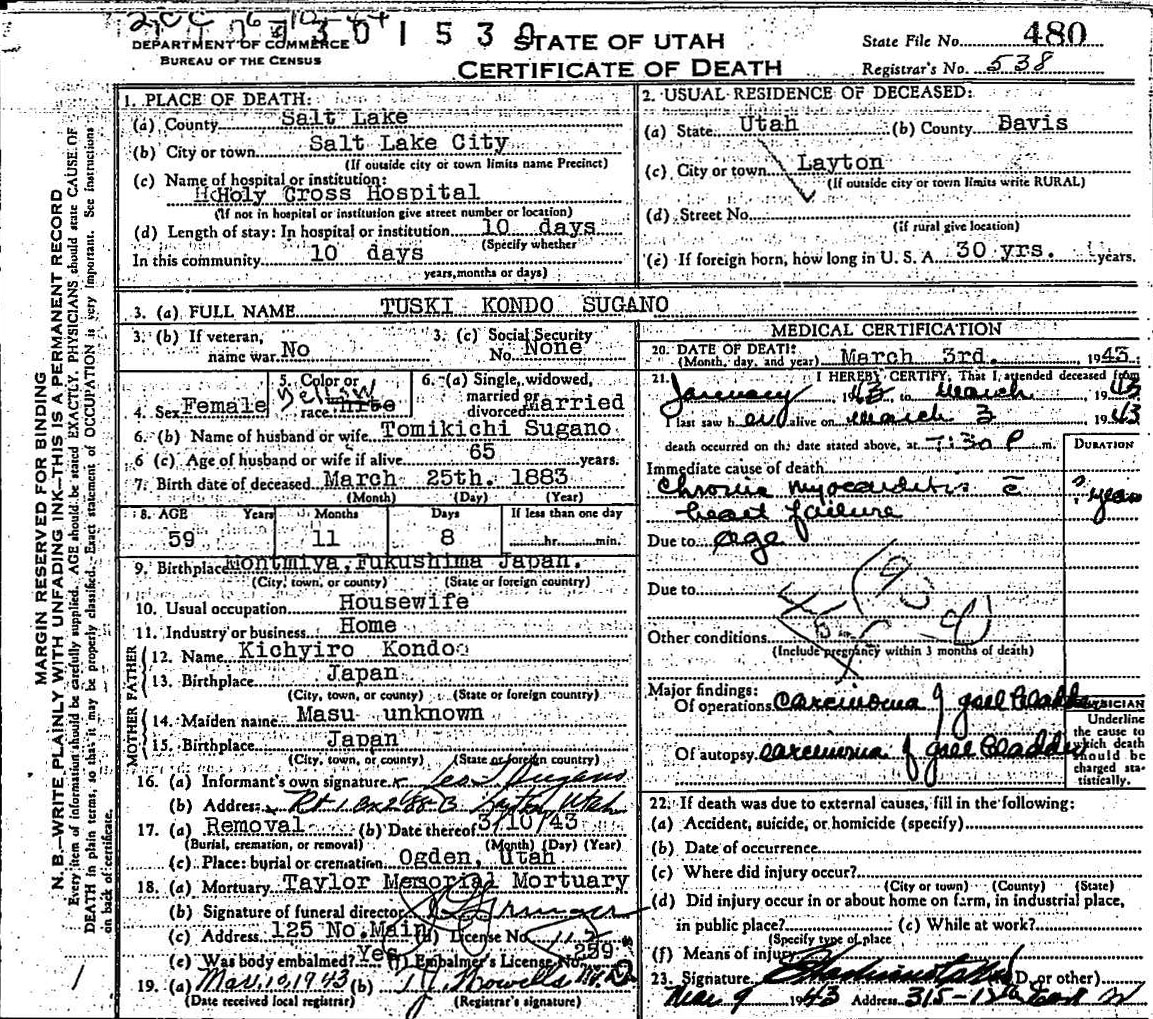 1 5 3 0
DEPARTMENT OF COMMERCE
BUREAU OF THE CENSUS
STATE OF UTAH
CERTIFICATE OF DEATH
State File No. 480
Registrar's No. 538
MARGIN RESERVED FOR BINDING
N. B.—WRITE PLAINLY WITH UNFADING INK—THIS IS A PERMANENT RECORD
Every item of information should be carefully supplied. AGE should be stated EXACTLY. PHYSICIANS should state CAUSE OF
DEATH in plain terms, so that it may be properly classified. Exact statement of OCCUPATION is very important. See instructions
on back of certificate.
1. PLACE OF DEATH:
(a) County Salt Lake
(b) City or town Salt Lake City
(If outside city or town limits name Precinct)
(c) Name of hospital or institution:
Holy Cross Hospital
(If not in hospital or institution give street number or location)
(d) Length of stay: In hospital or institution 10 days
(Specify whether
In this community 10 days
years, months or days)
2. USUAL RESIDENCE OF DECEASED:
(a) State Utah (b) County Davis
(c) City or town Layton
(If outside city or town limits write RURAL)
(d) Street No.
(if rural give location)
(e) If foreign born, how long in U. S. A. 30 yrs. years.
3. (a) FULL NAME TUSKI KONDO SUGANO
3. (b) If veteran, name war No
3. (c) Social Security No. None
4. Sex Female
5. Color or race Yellow
6. (a) Single, widowed, married or divorced married
6. (b) Name of husband or wife Tomikichi Sugano
6 (c) Age of husband or wife if alive 65 years.
7. Birth date of deceased March 25th. 1883
(Month) (Day) (Year)
8. AGE Years Months Days If less than one day
59 11 8 hr. min.
9. Birthplace Montmiya, Fukushima Japan.
(City, town, or county) (State or foreign country)
10. Usual occupation Housewife
11. Industry or business Home
FATHER
12. Name Kichyiro Kondo
13. Birthplace Japan
(City, town, or county) (State or foreign country)
MOTHER
14. Maiden name Masu unknown
15. Birthplace Japan
(City, town, or county) (State or foreign country)
16. (a) Informant's own signature Sugano
(b) Address Layton, Utah
17. (a) Removal (b) Date thereof 3/10/43
(Burial, cremation, or removal) (Month) (Day) (Year)
(c) Place: burial or cremation Ogden, Utah
18. (a) Mortuary Taylor Memorial Mortuary
(b) Signature of funeral director
(c) Address 125 No. Main (d) License No.
(e) Was body embalmed? Yes (f) Embalmer's License No. 259
19. (a) Mar. 10, 1943 (b) M.D
(Date received local registrar) (Registrar's signature)
MEDICAL CERTIFICATION
20. DATE OF DEATH:
(Month, day, and year) March 3rd. , 1943
21. I HEREBY CERTIFY, That I attended deceased from
January 1943, to March 1943
I last saw her alive on March 3 1943
death occurred on the date stated above, at 7:30 P m.
DURATION
Immediate cause of death
Chronic myocarditis c̄ ? years
heart failure
Due to age
Due to
Other conditions
(Include pregnancy within 3 months of death)
Major findings:
Of operations carcinoma of gall bladder
Of autopsy carcinoma of gall bladder
PHYSICIAN
Underline
the cause to
which death
should be
charged sta-
tistically.
22. If death was due to external causes, fill in the following:
(a) Accident, suicide, or homicide (specify)
(b) Date of occurrence
(c) Where did injury occur?
(City or town) (County) (State)
(d) Did injury occur in or about home on farm, in industrial place,
in public place? (e) While at work?
(Specify type of place
(f) Means of injury
23. Signature (M. D. or other)
Mar 9 1943 Address